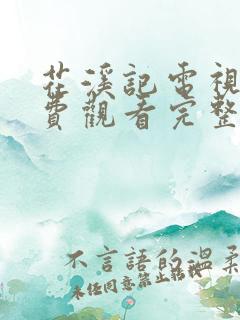 茫溪記電視
費觀看完整
不言語的溫柔
未经同意禁止转载